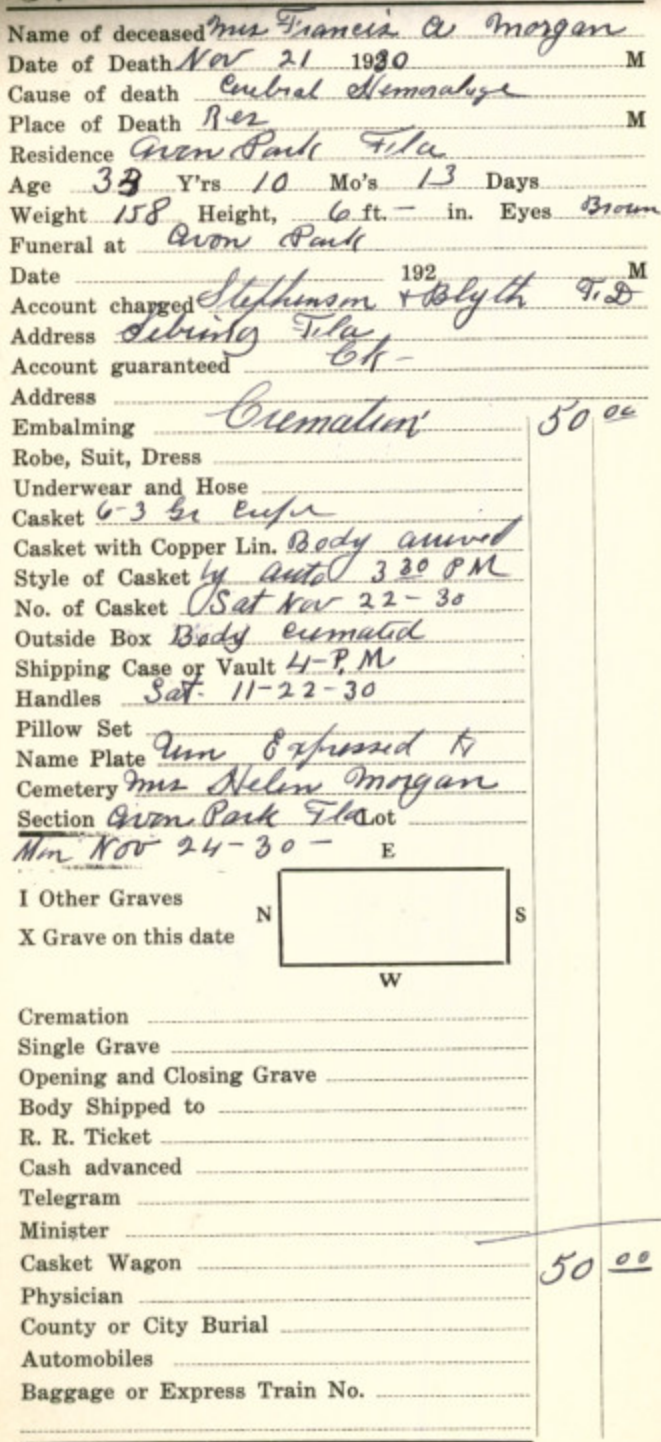 Name of deceased Mrs Francis A Morgan
Date of Death Nov 21 1930 M
Cause of death Cerebral Hemoralige
Place of Death Res M
Residence Avon Park Fla
Age Y'rs 10 Mo's 13 Days
Weight 158 Height, 6 ft. - in. Eyes Brown
Funeral at Avon Park
Date 192 M
Account charged Stephenson & Blyth F.D
Address Sebring Fla
Account guaranteed Ck -
Address
Embalming Cremation 50 00
Robe, Suit, Dress
Underwear and Hose
Casket 6-3 Gr
Casket with Copper Lin. Body arrived
Style of Casket by auto 3 30 PM
No. of Casket Sat Nov 22-30
Outside Box Body cremated
Shipping Case or Vault 4-P.M
Handles Sat. 11-22-30
Pillow Set
Name Plate Urn Expressed to
Cemetery Mrs Helen Morgan
Section Avon Park Fla Lot
Mon Nov 24-30-
E
I Other Graves
N S
X Grave on this date
W
Cremation
Single Grave
Opening and Closing Grave
Body Shipped to
R. R. Ticket
Cash advanced
Telegram
Minister
Casket Wagon 50 00
Physician
County or City Burial
Automobiles
Baggage or Express Train No.